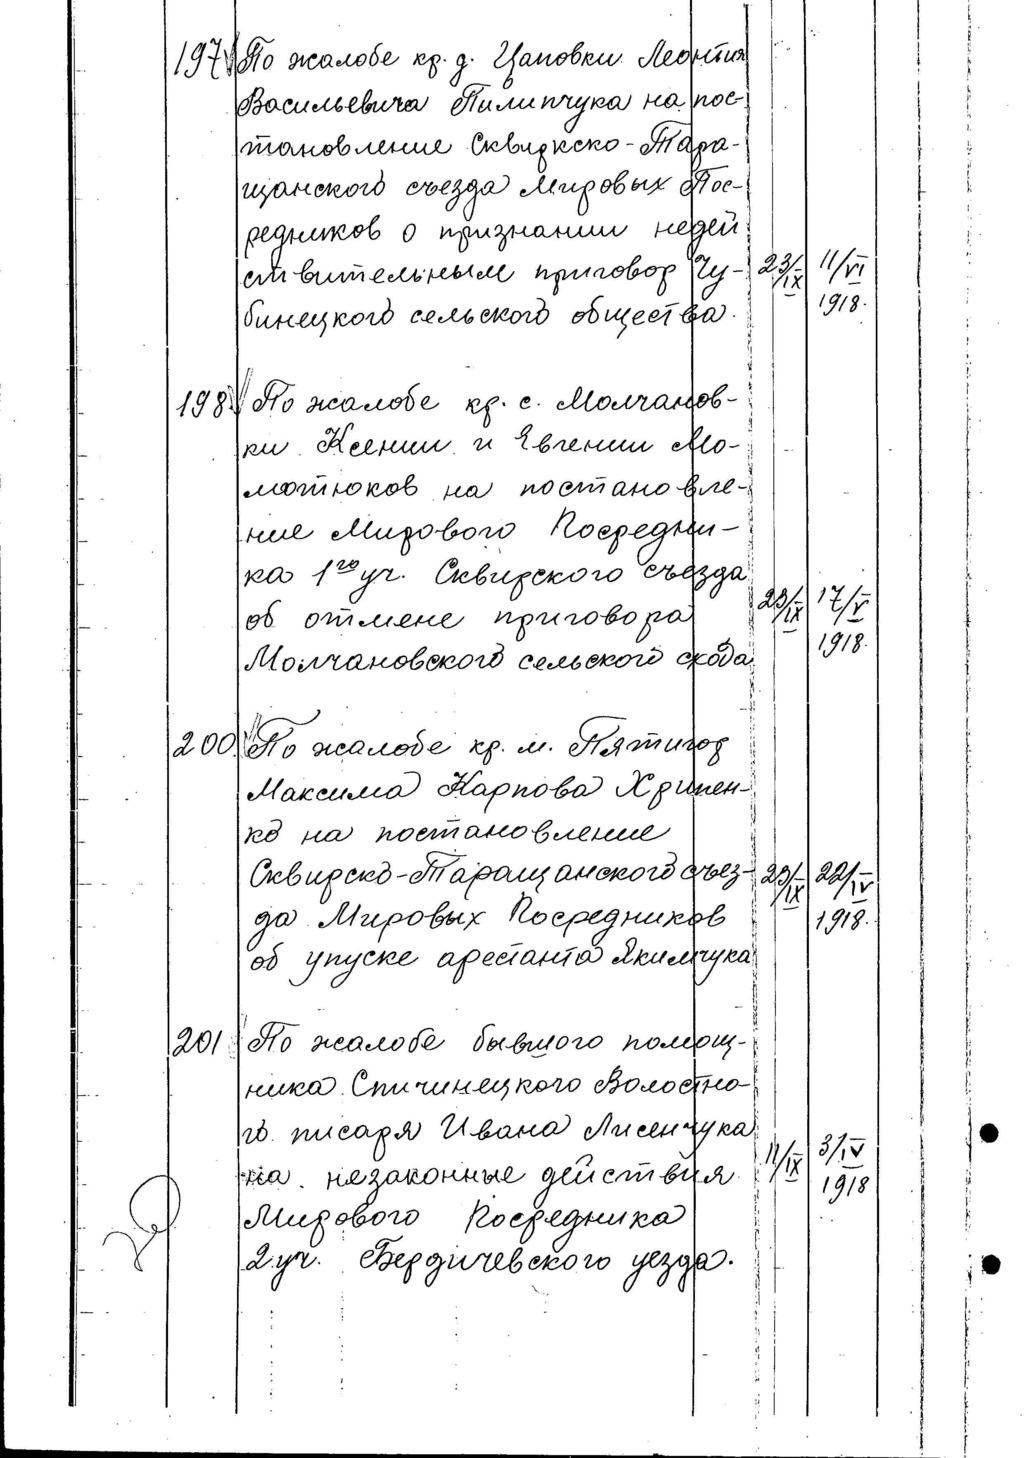 197 По жалобе кр. д. Цаповки Леонтия
Васильевича Пилипчука на пос-
тановление Сквиркско-Тара-
щанского съезда Мировых Пос-
редников о признании недей
ствительным приговор Чу- 23/IX 11/VI
бинецкого сельского общества. 1918.
198. По жалобе кр. с. Молчанов-
ки Ксении и Евгении Мо-
мотюков на постановле-
ние Мирового Посредни-
ка 1го уч. Сквирского съезда
об отмене приговора 23/IX 17/V
Молчановского сельского схода 1918.
200. По жалобе кр. м. Пятигор
Максима Карпова Хрипен-
ко на постановление
Сквирско-Таращанского съез- 23/IX 22/IV
да Мировых Посредников 1918.
об упуске арестанта Якимчука
201 По жалобе бывшого помощ-
ника Спичинецкого Волостно-
го писаря Ивана Лисенчука
на незаконные действия 11/IX 31/IV 1918
Мирового Посредника
2 уч. Бердичевского уезда.